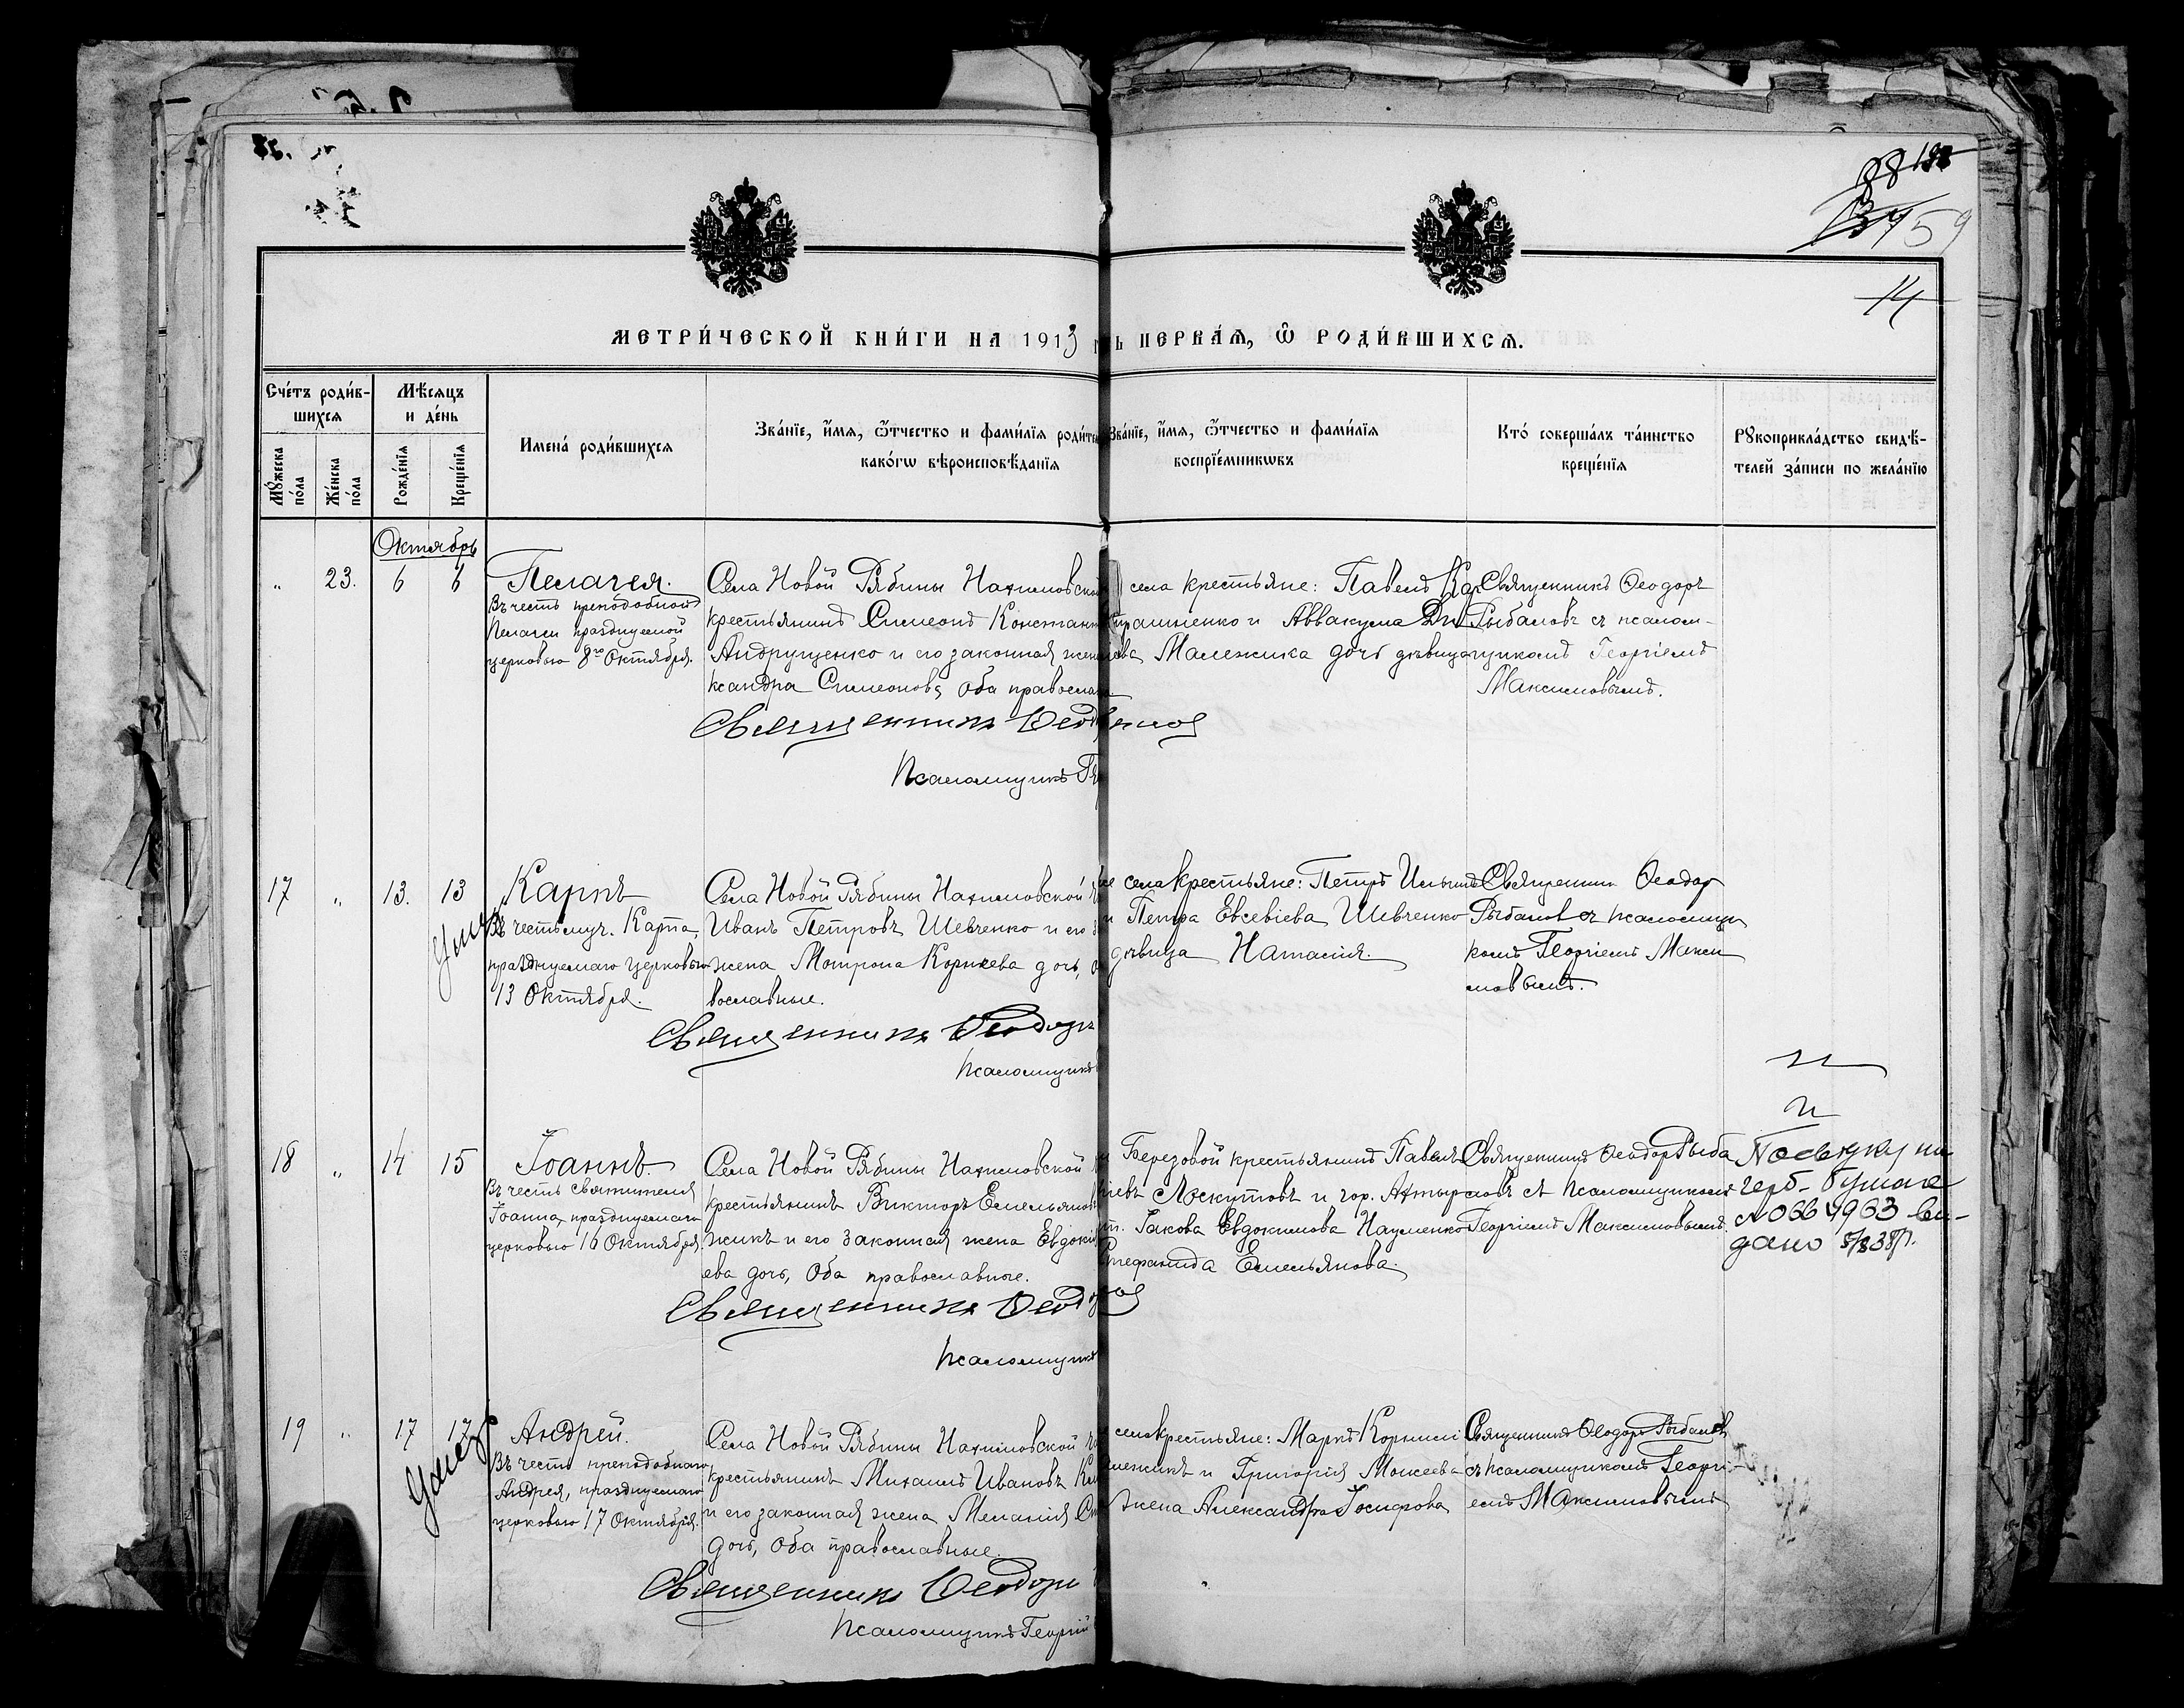 188
88
59
14
МЕТРИ́ЧЕСКОЙ КНИ́ГИ НА 1913
ПЕРВАѦ, Ѡ РОДИ́ВШИХСѦ.
Сче́тъ роди́в-
шихсѧ
Мѣ́сѧцъ
и де́нь
Мꙋ́жеска
по́ла
Же́нска
по́ла
Рожде́нїѧ
Креще́нїѧ
Имена́ роди́вшихсѧ
Зва́нїе, и́мѧ, ѻ҆́тчество и фами́лїѧ роди́т
како́гѡ вѣроисповѣ́данїѧ
Зва́нїе, и́мѧ, ѻ҆́тчество и фами́лїѧ
воспрїе́мникѡвъ
Кто́ соверша́лъ та́инство
креще́нїѧ
Рꙋкоприкла́дство свидѣ́-
телей за́писи по жела́нїю
Октябрь
" 23. 6 6
Пелагея.
Въ честь преподобной
Пелагеи празднуемой
церковью 8го Октября.
Села Новой Рябины Нахимовской
крестьянинъ Симеонъ Констант
Андрущенко и его законная жен
ксандра Симеонова, оба православ
Священникъ Ѳеод
Псаломщикъ
села крестьяне: Павелъ
и Аввакума
Малежика дочь дѣвица
Священникъ Ѳеодоръ
Рыбаловъ съ псалом-
щикомъ Георгіемъ
Максимовымъ.
17 " 13. 13
Карпъ
Въ честь муч. Карпа,
празднуемаго церковью
13 Октября.
Села Новой Рябины Нахимовской
Иванъ Петровъ Шевченко и его
жена Мотрона Корнѣева дочь,
вославные.
Священникъ Ѳеодоръ
Псаломщикъ
села крестьяне: Петръ Ильинъ
и Петра Евсевіева Шевченко
дѣвица Наталія.
Священникъ Ѳеодор
Рыбалов съ псаломщи
комъ Георгіемъ Макси
мовымъ.
18 " 14 15
Іоаннъ.
Въ честь святителя
Іоанна, празднуемаго
церковью 16 Октября.
Села Новой Рябины Нахимовской
крестьянинъ Викторъ Емельянов
жикъ и его законная жена Евдокі
ева дочь, Оба православные.
Священникъ Ѳеод
Псаломщикъ
Березовой крестьянинъ Павелъ
Лоскутовъ и гор. Ахтыр
Іакова Евдокимова Науменко
Стефанида Емельянова.
Священникъ Ѳеодор Рыба
ловъ съ псаломщикомъ
Георгіемъ Максимовымъ.
герб. бумаге
№ 0664963 вы-
дано
19 " 17 17
Умер
Андрей.
Въ честь преподобнаго
Андрея, празднуемаго
церковью 17 Октября.
Села Новой Рябины Нахимовской
крестьянинъ Михаилъ Ивановъ
и его законная жена Меланія
дочь, Оба православные.
Священникъ Ѳеодоръ
Псаломщикъ Георгій
села крестьяне: Маркъ
и Григорія Моисеева
жена Александра Іосифова
Священникъ Ѳеодоръ Рыбаловъ
съ псаломщикомъ Георгі-
емъ Максимовымъ